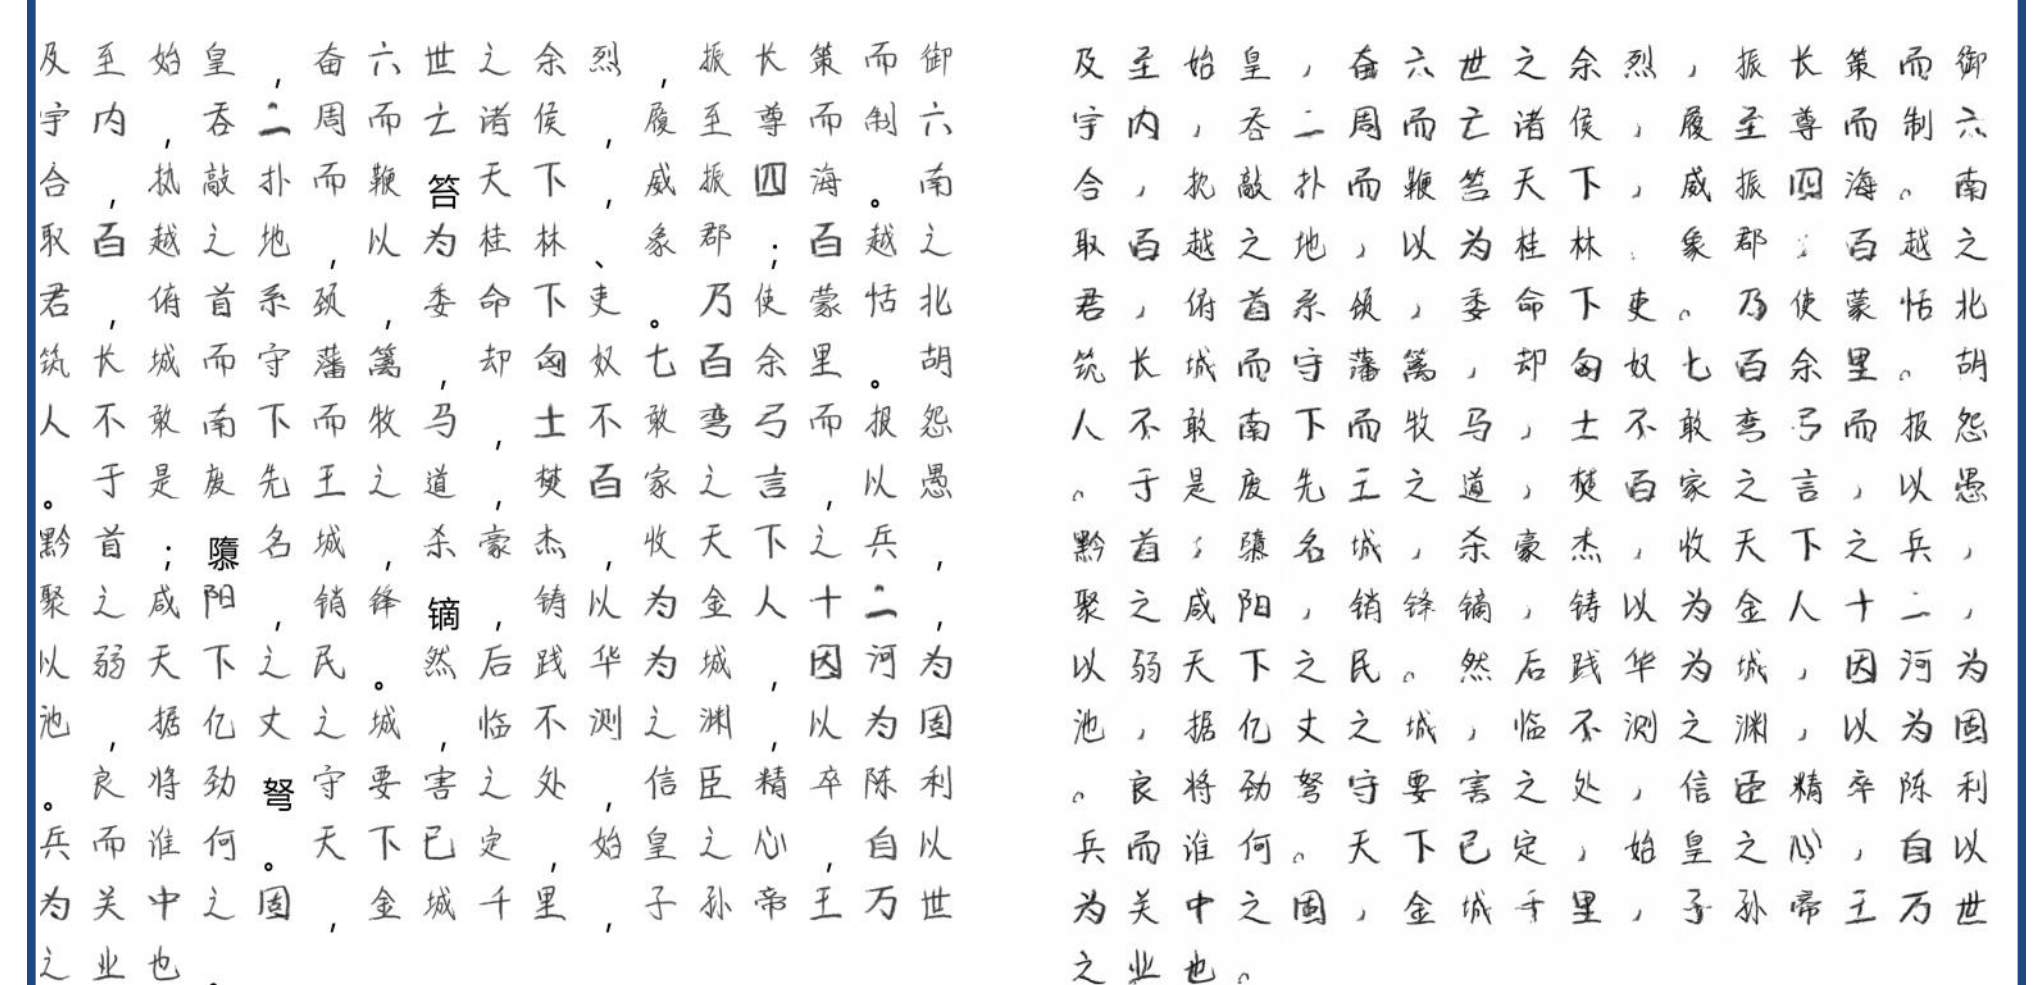 及至始皇，奋六世之余烈，振长策而御
宇内，吞二周而亡诸侯，履至尊而制六
合，执敲扑而鞭笞天下，威振四海。南
取百越之地，以为桂林、象郡；百越之
君，俯首系颈，委命下吏。乃使蒙恬北
筑长城而守藩篱，却匈奴七百余里。胡
人不敢南下而牧马，士不敢弯弓而报怨
。于是废先王之道，焚百家之言，以愚
黔首；隳名城，杀豪杰，收天下之兵，
聚之咸阳，销锋镝，铸以为金人十二，
以弱天下之民。然后践华为城，因河为
池，据亿丈之城，临不测之渊，以为固
。良将劲弩守要害之处，信臣精卒陈利
兵而谁何。天下已定，始皇之心，自以
为关中之固，金城千里，子孙帝王万世
之业也。
及至始皇，奋六世之余烈，振长策而御
宇内，吞二周而亡诸侯，履至尊而制六
合，执敲扑而鞭笞天下，威振四海。南
取百越之地，以为桂林、象郡；百越之
君，俯首系颈，委命下吏。乃使蒙恬北
筑长城而守藩篱，却匈奴七百余里。胡
人不敢南下而牧马，士不敢弯弓而报怨
。于是废先王之道，焚百家之言，以愚
黔首；隳名城，杀豪杰，收天下之兵，
聚之咸阳，销锋镝，铸以为金人十二，
以弱天下之民。然后践华为城，因河为
池，据亿丈之城，临不测之渊，以为固
。良将劲弩守要害之处，信臣精卒陈利
兵而谁何。天下已定，始皇之心，自以
为关中之固，金城千里，子孙帝王万世
之业也。